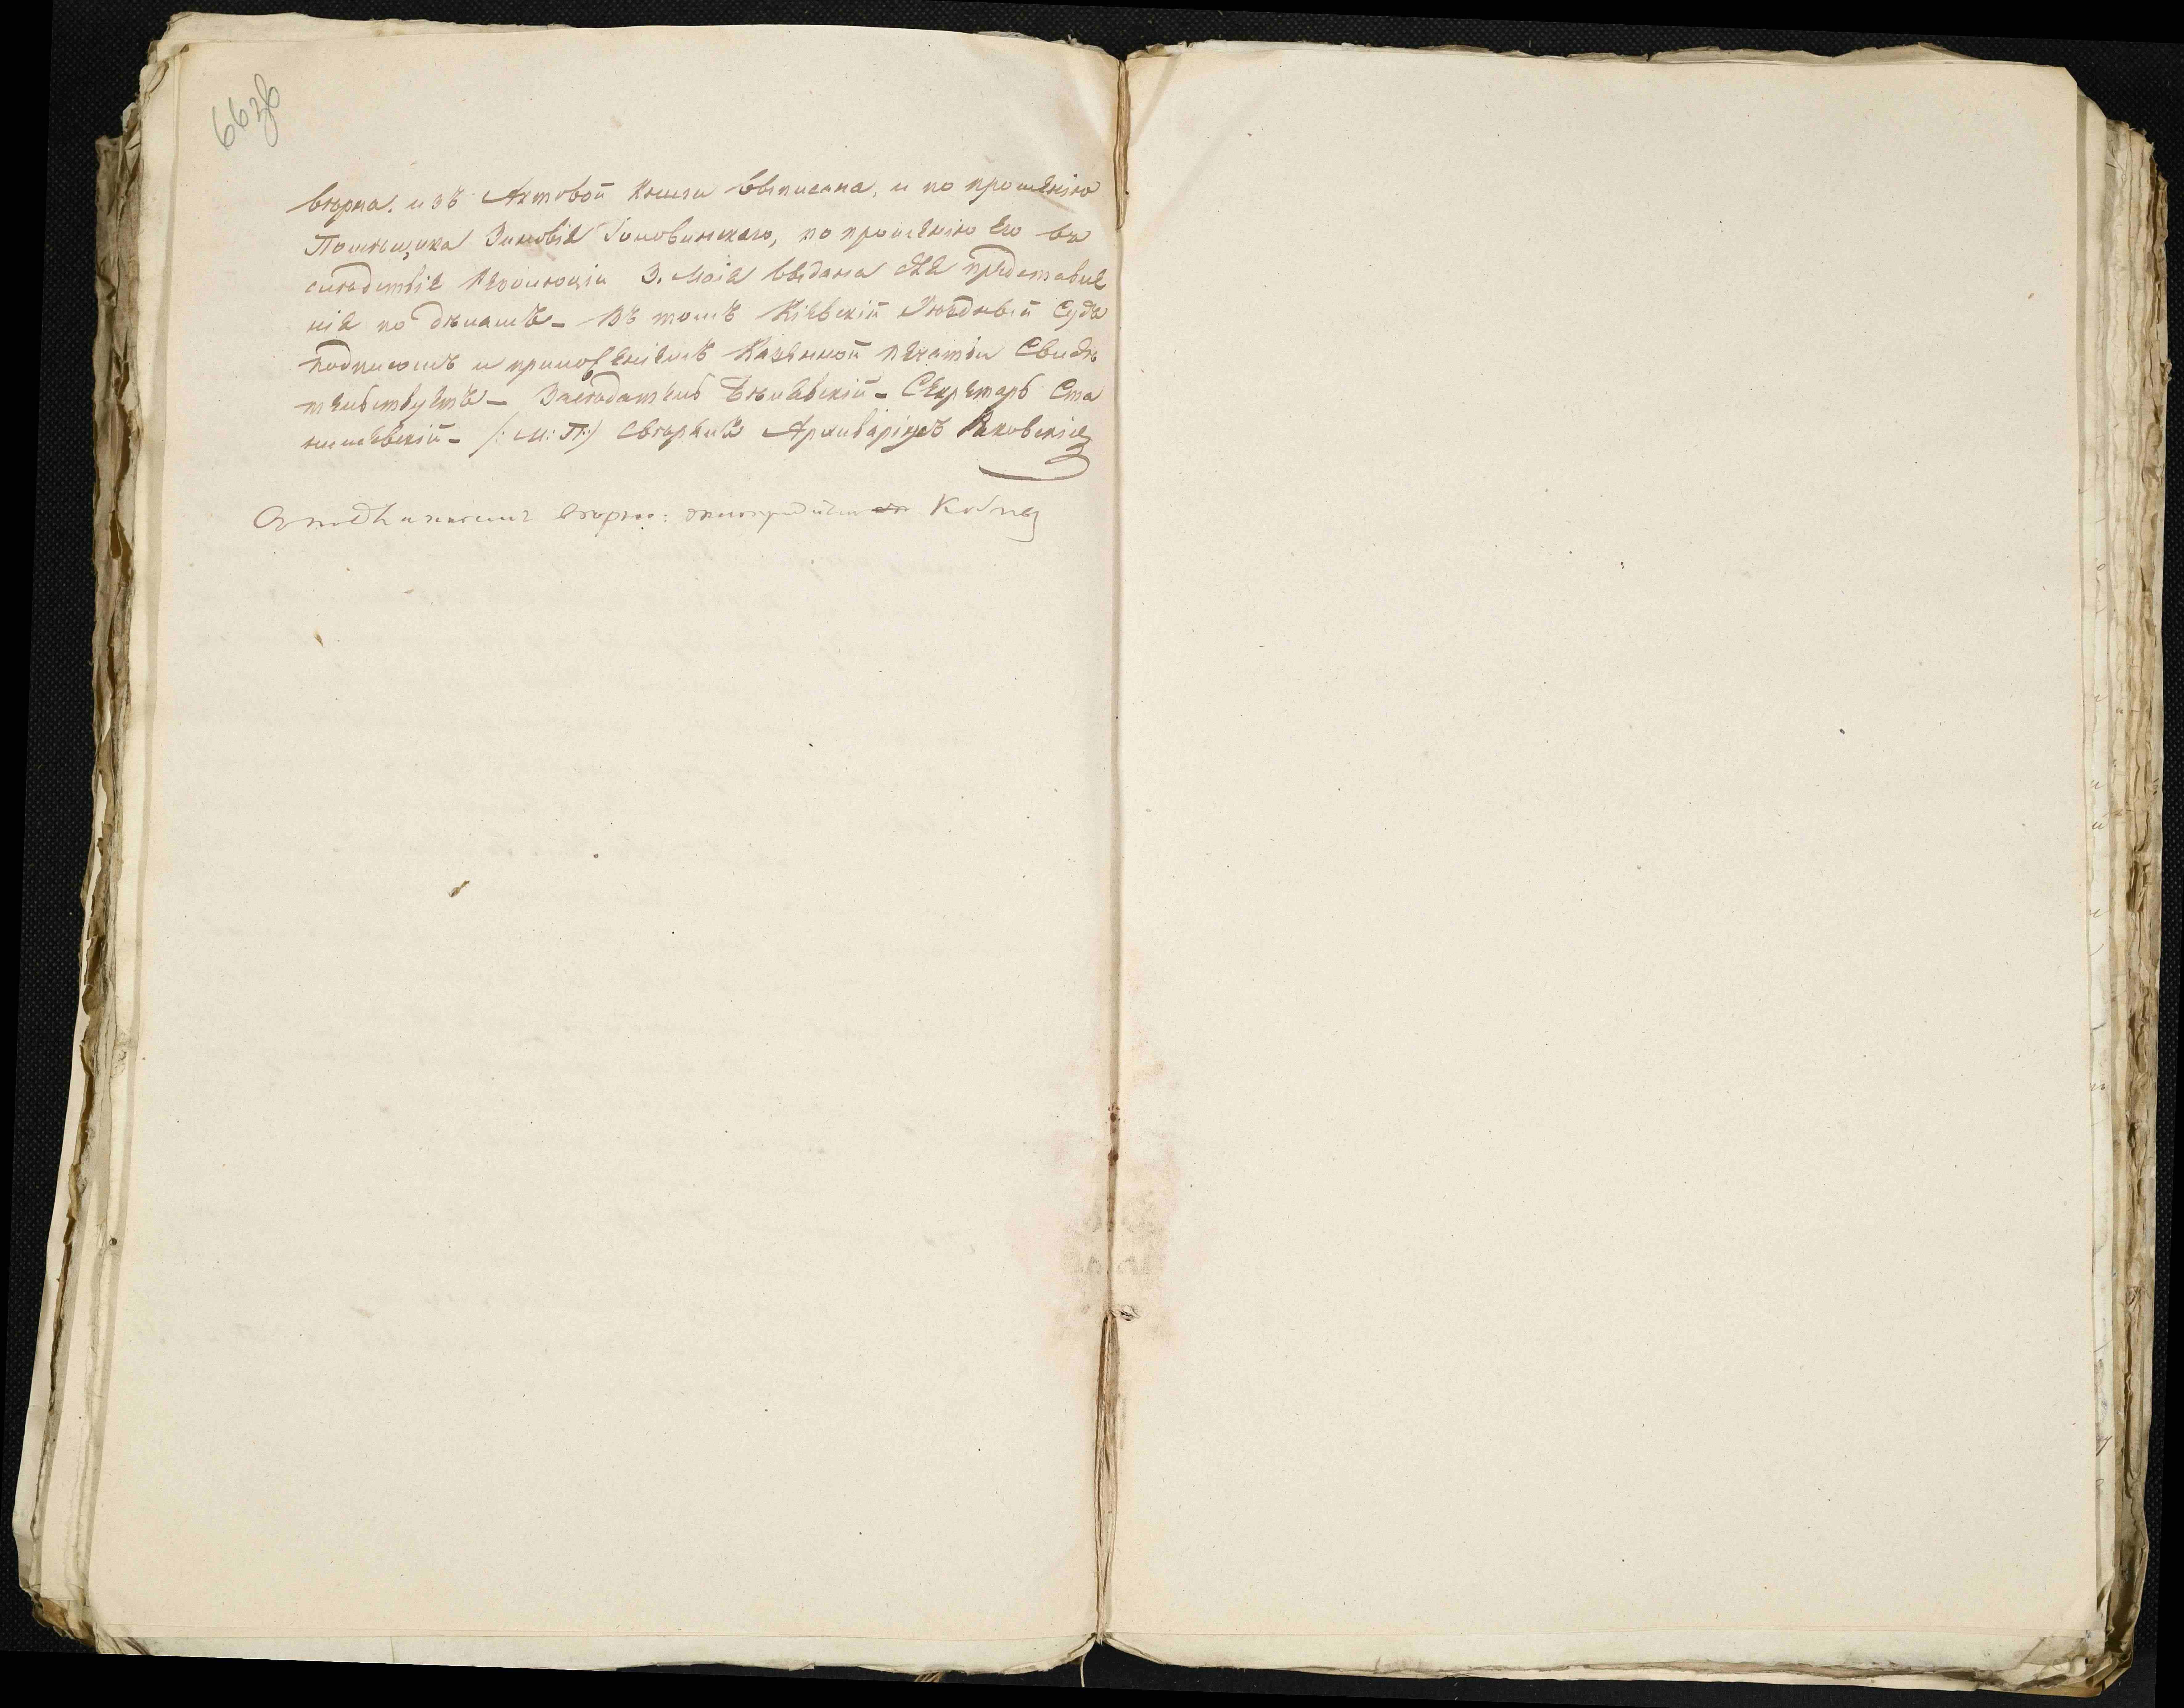 66зв
вѣрна. изъ Актовой Книги выписана, и по прошенію
Помѣщика Зиновія Головинскаго, по прошенію Его въ
слѣдствіе Резолюціи 3. Маія выдана для представле
нія по дѣламъ – Въ томъ Кіевскій Уѣздный Судъ
подписомъ и приложеніемъ Казенной печати Свидѣ
тельствуетъ – Засѣдатель – Секретарь Ста
нишевскій – /:М:П:/ Свѣрялъ Архиваріусъ Раковскій
Съ подлиннымъ вѣрно: